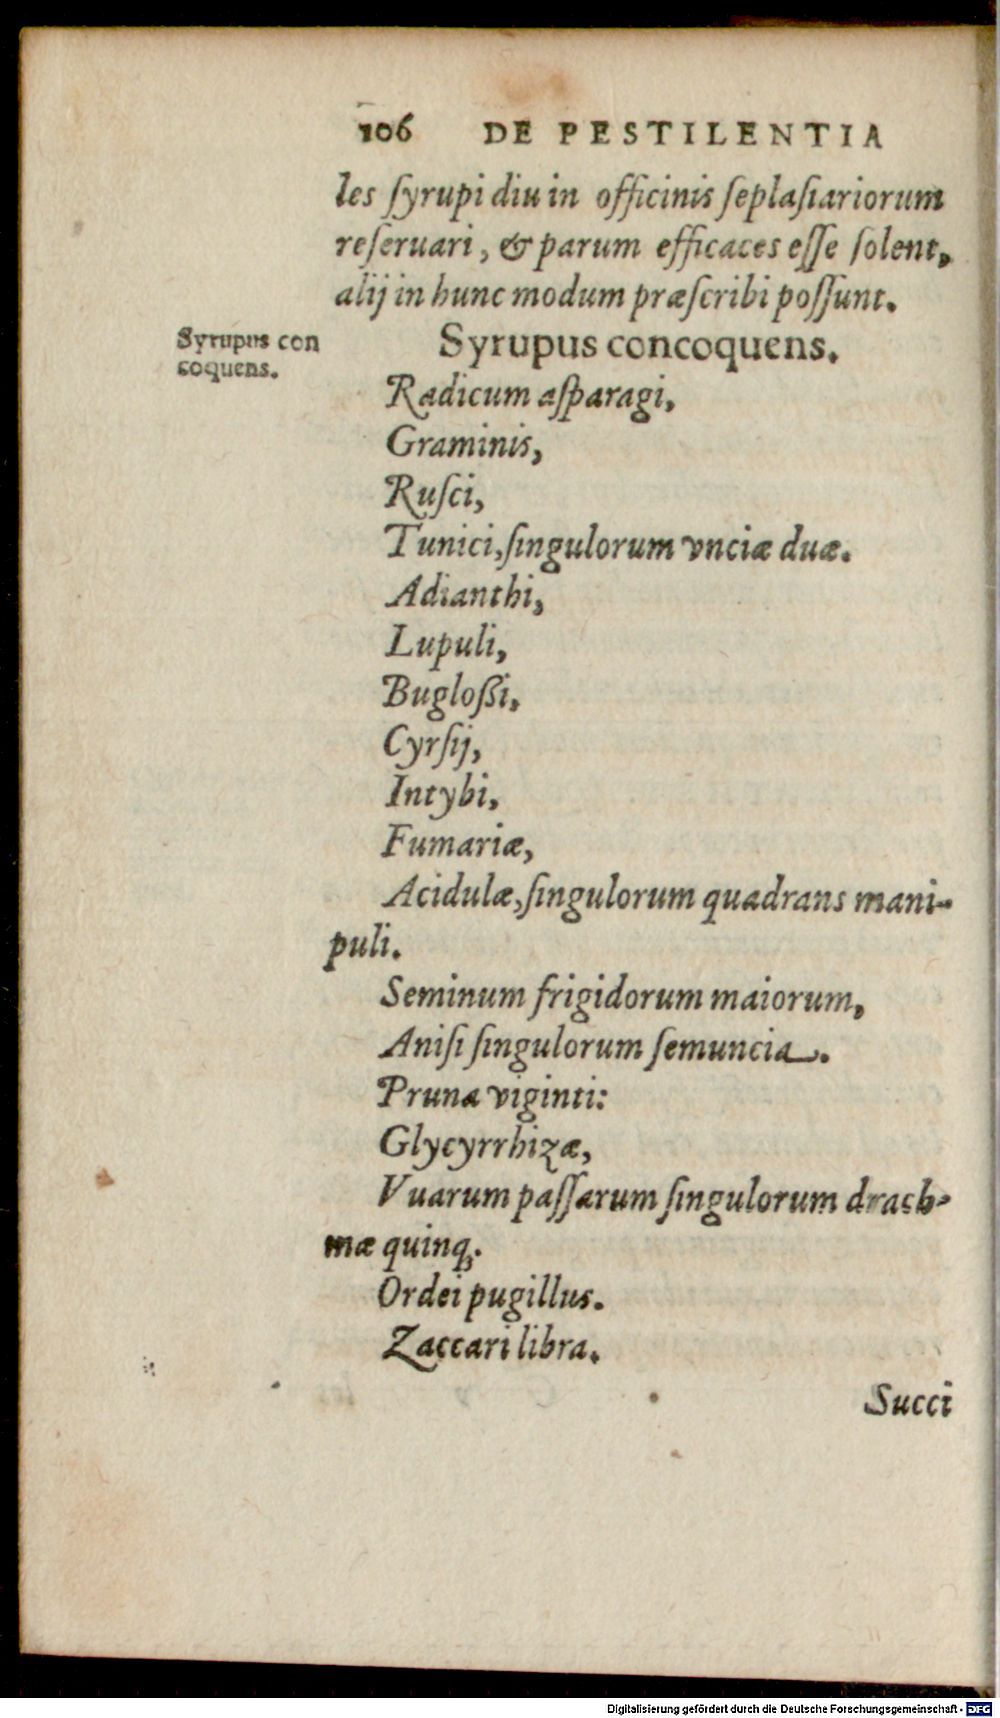 106 DE PESTILENTIA
les ſyrupi diu in officinis ſeplaſiariorum
reſeruari, & parum efficaces eſſe ſolent,
alij in hunc modum præſcribi poſſunt.
Syrupus con
coquens.
Syrupus concoquens.
Radicum aſparagi,
Graminis,
Ruſci,
Tunici, ſingulorum vnciæ duæ.
Adianthi,
Lupuli,
Bugloßi,
Cyrſij,
Intybi,
Fumariæ,
Acidulæ, ſingulorum quadrans mani-
puli.
Seminum frigidorum maiorum,
Aniſi ſingulorum ſemuncia.
Pruna viginti:
Glycyrrhizæ,
Vuarum paſſarum ſingulorum drach-
mæ quinq;.
Ordei pugillus.
Zaccari libra.
Succi
Digitalisierung gefördert durch die Deutsche Forschungsgemeinschaft - DFG